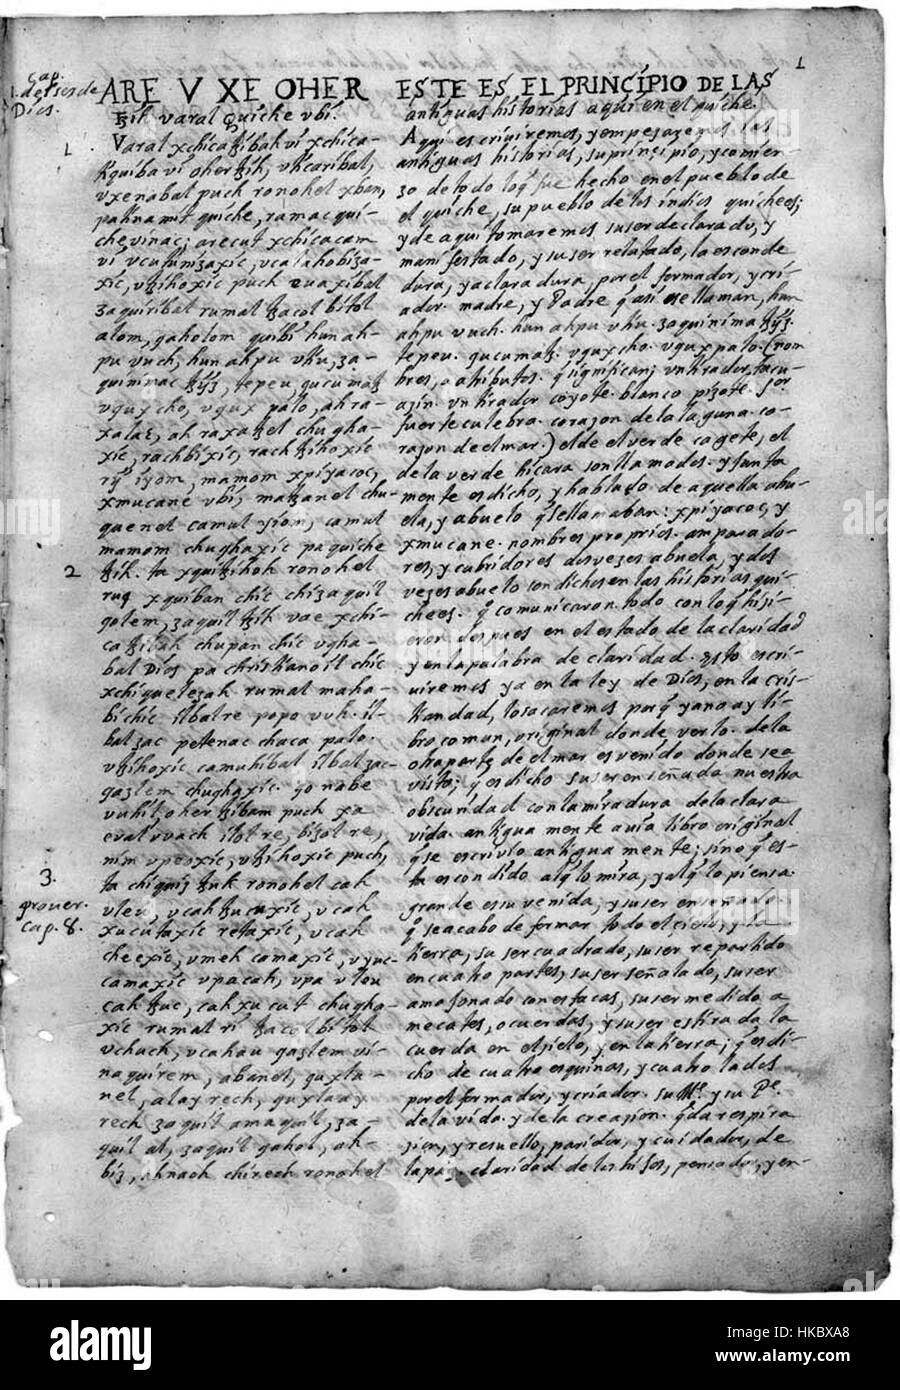 1
Cap.
1. de
Dios.
ARE V XE OHER
tzih varal Quiche ubi.
1.
Varal xchicatzibah vi xchica-
tiquiba vi oher tzih, uticaribal,
uxenabal puch ronohel xban,
pa tinamit quiche, ramac qui-
che vinac; arecut xchicacam
vi ucutunizaxic, ucalahobiza-
xic, utzihoxic puch euaxibal
zaquiribal rumal tzacol bitol
alom, qaholom quibi hun ah-
pu vuch, hun ahpu utiu, za-
quinimac tzyz, tepeu, qucumatz
uquxcho, uqux palo, ah ra-
xalaz, ah raxatzel chugha-
xic, rachbixic, rachtzihoxic
rij iyom, mamom xpiyacoc,
xmucane ubi, matzanel chu-
quenel camul iyom, camul
mamom chughaxic pa quiche
2
tzih. ta xquitzihoh ronohel
ruq xquiban chic chizaquil
qolem, zaquil tzih vae xchi-
catzibah chupan chic ugha-
bal Dios pa christianoil chic
xchiquelezah rumal maha-
bi chic ilbal re popo vuh. il-
bal zac petenac chaca palo.
utzihoxic camuhibal ilbal zac-
gazlem chughaxic. go nabe
vuhil, oher tzibam puch xa
eval uvach ilol re, bizol re,
nim upeoxic, utzihoxic puch,
3.
ta chiquis tzuk ronohel cah
Cap. 8.
uleu, ucah tzucuxic, ucah
xucutaxic retaxic, ucah
cheexic, umeh camaxic, uyuc-
camaxic upacah, upa uleu
cah tzuc, cah xucut chugha-
xic rumal ri tzacol bitol
uchuch, ucahau gazlem vi-
naquirem, abanel, quxla-
nel, alay rech, quxlaay
rech zaquil amaquil, za-
quil al, zaquil qahol, ah-
biz, ahnaoh chirech ronohel
ESTE ES EL PRINCIPIO DE LAS
antiguas historias aqui en el quiche.
Aqui escriuiremos, y empeçaremos las
antiguas historias, su prinçipio, y comien-
zo de todo loq̃ fue hecho en el pueblo de
el quiche, su pueblo de los indios quichees;
y de aqui tomaremos su ser declarado, y
manifestado, y su ser relatado, la esconde
dura, y aclaradura, por el formador, y cri-
ador. madre, y Padre q̃ asi se llaman, hun
ahpu vuch. hun ahpu utiu. zaquinima tzyz.
tepeu. qucumatz. uquxcho. uqux palo. (nom
bres, o atributos. q̃ significan; vn tirador, tacu-
azin. vn tirador coyote. blanco pizote. Sor
fuerte culebra. corazon de la laguna. co-
razon de el mar.) el de el verde cagete, el
de la verde hicara son llamados. y junta
mente es dicho, y hablado de aquella abu-
ela, y abuelo q̃ se llamaban: xpiyacoc, y
xmucane. nombres proprios. amparado-
res, y cubridores dos vezes abuela, y dos
vezes abuelo son dichos en las historias qui-
chees. q̃ comunicaron todo con loq̃ hizi-
eron despues en el estado de la claridad
y en la palabra de claridad. esto escri-
uiremos ya en la ley de Dios, en la cris-
tiandad, lo sacaremos porq̃ ya no ay li-
bro comun, original donde verlo. de la
otra parte de el mar es venido donde sea
visto; q̃ es dicho su ser enseñada nuestra
obscuridad con la miradura de la clara
vida. antiguamente auia libro original
q̃ se escrivio antiguamente; sino q̃ es-
ta escondido alq̃ lo mira, y alq̃ lo piensa.
grande es su venida, y su ser enseñado.
q̃ se acabo de formar todo el çielo, y la
tierra, su ser cuadrado, su ser repartido
en cuatro partes, su ser señalado, su ser
amojonado con estacas, su ser medido a
mecates, o cuerdas, y su ser estirada la
cuerda en el çielo, y en la tierra; q̃ es di-
cho de cuatro esquinas, y cuatro lados
por el formador, y criador. su Me. y su Pe.
de la vida. y de la creaçion. q̃ da respira
zion, y resuello, paridor, y cuidador, de
la paz, claridad de los hijos, pensador, y en-
alamy
Image ID: HKBXA8
www.alamy.com